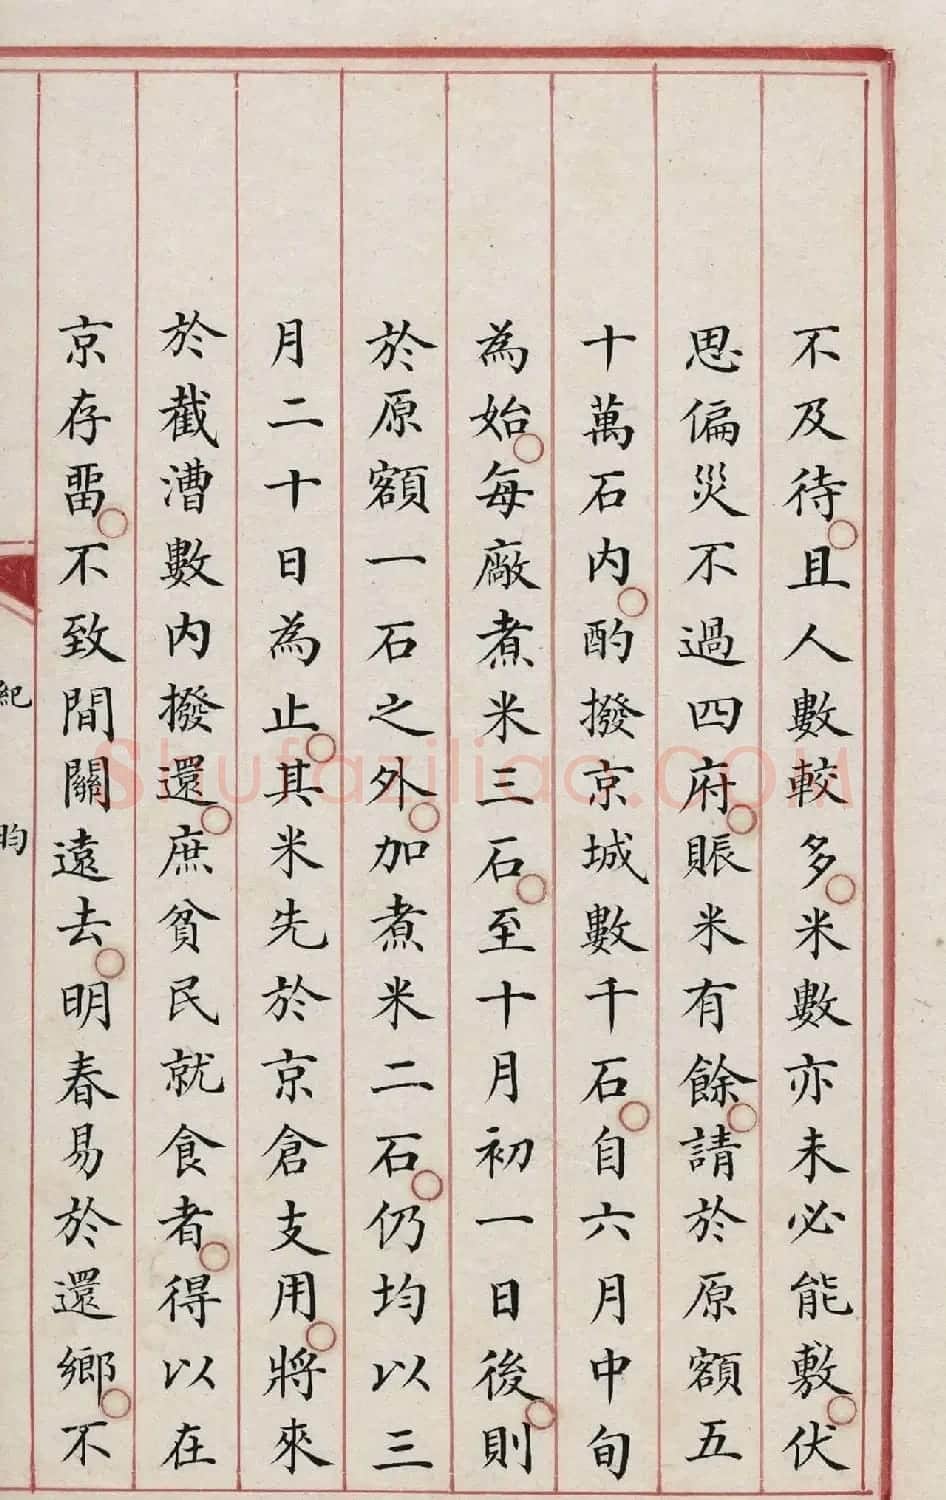 不及待。且人數較多。米數亦未必能敷。伏
思偏災不過四府。賑米有餘。請於原額五
十萬石內。酌撥京城數千石。自六月中旬
為始。每廠煮米三石。至十月初一日後。則
於原額一石之外。加煮米二石。仍均以三
月二十日為止。其米先於京倉支用。將來
於截漕數內撥還。庶貧民就食者。得以在
京存畱。不致間關遠去。明春易於還鄉。不
紀昀
shufaziliao.COM